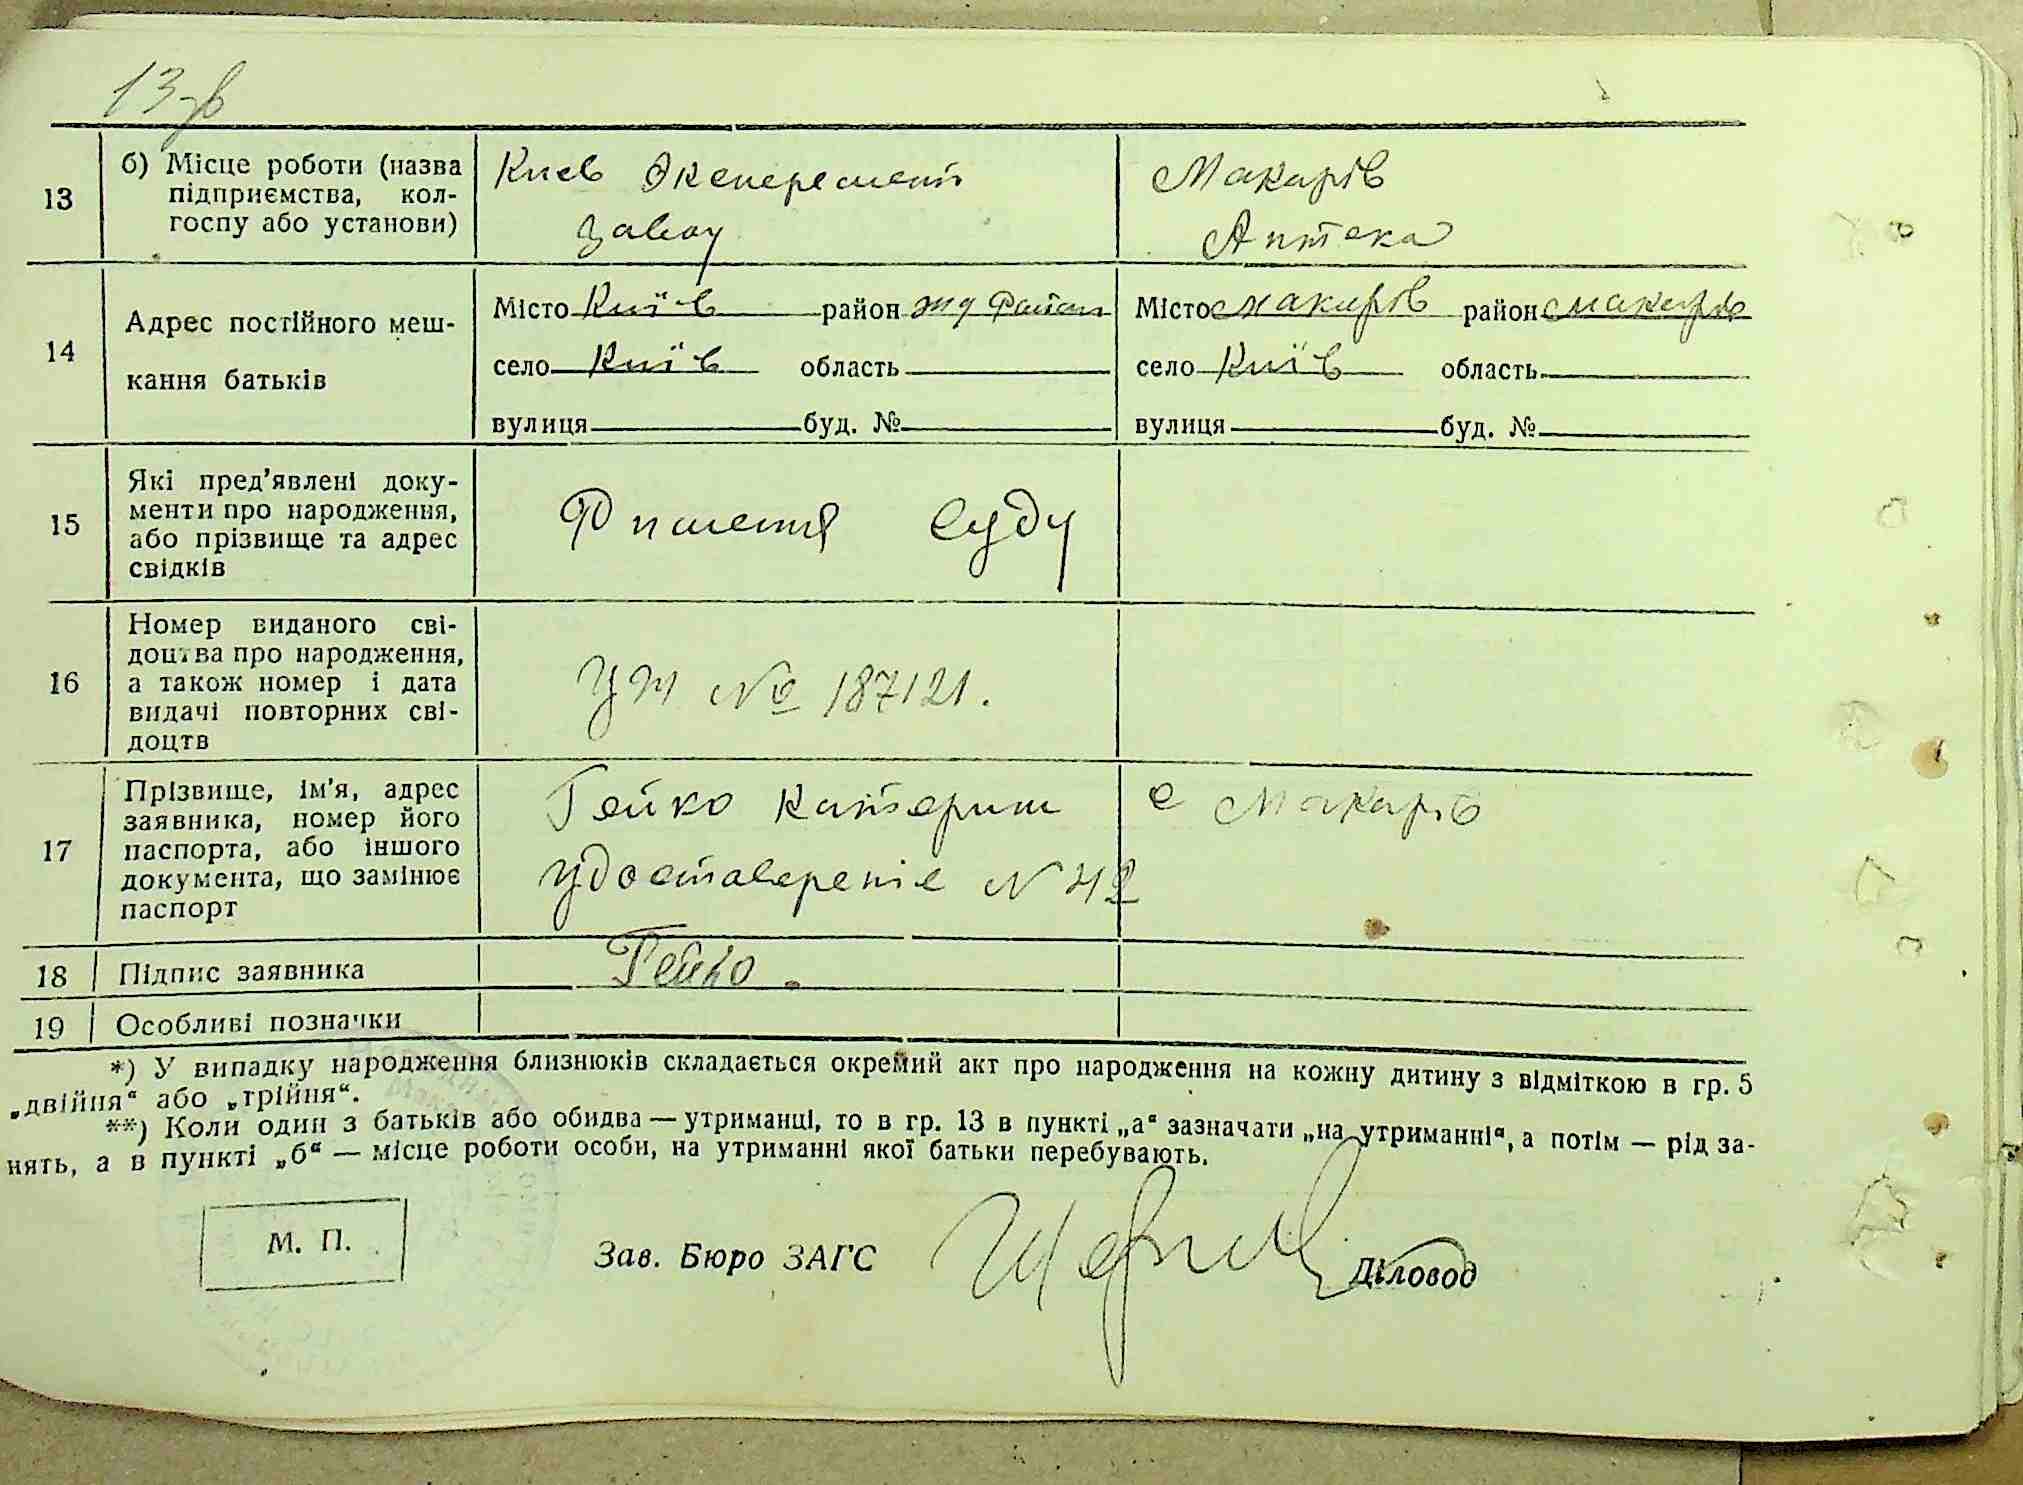 13 зв
13
б) Місце роботи (назва
підприємства, кол-
госпу або установи)
Киев Экоперемент
завод
Макарів
Аптека
14
Адрес постійного меш-
кання батьків
Місто Київ район жд Район
село Київ область
вулиця буд. №
Місто Макарів район Макарів
село Київ область
вулиця буд. №
15
Які пред'явлені доку-
менти про народження,
або прізвище та адрес
свідків
Ришення Суду
16
Номер виданого сві-
доцтва про народження,
а також номер і дата
видачі повторних сві-
доцтв
УЖ № 187121.
17
Прізвище, ім'я, адрес
заявника, номер його
паспорта, або іншого
документа, що замінює
паспорт
Гейко Катерини с Макарів
удоставереніе N 42
18
Підпис заявника
Гейко.
19
Особливі позначки
*) У випадку народження близнюків складається окремий акт про народження на кожну дитину з відміткою в гр. 5
„двійня“ або „трійня“.
**) Коли один з батьків або обидва — утриманці, то в гр. 13 в пункті „а“ зазначати „на утриманні“, а потім — рід за-
нять, а в пункті „б“ — місце роботи особи, на утриманні якої батьки перебувають.
М. П.
Зав. Бюро ЗАГС
Діловод